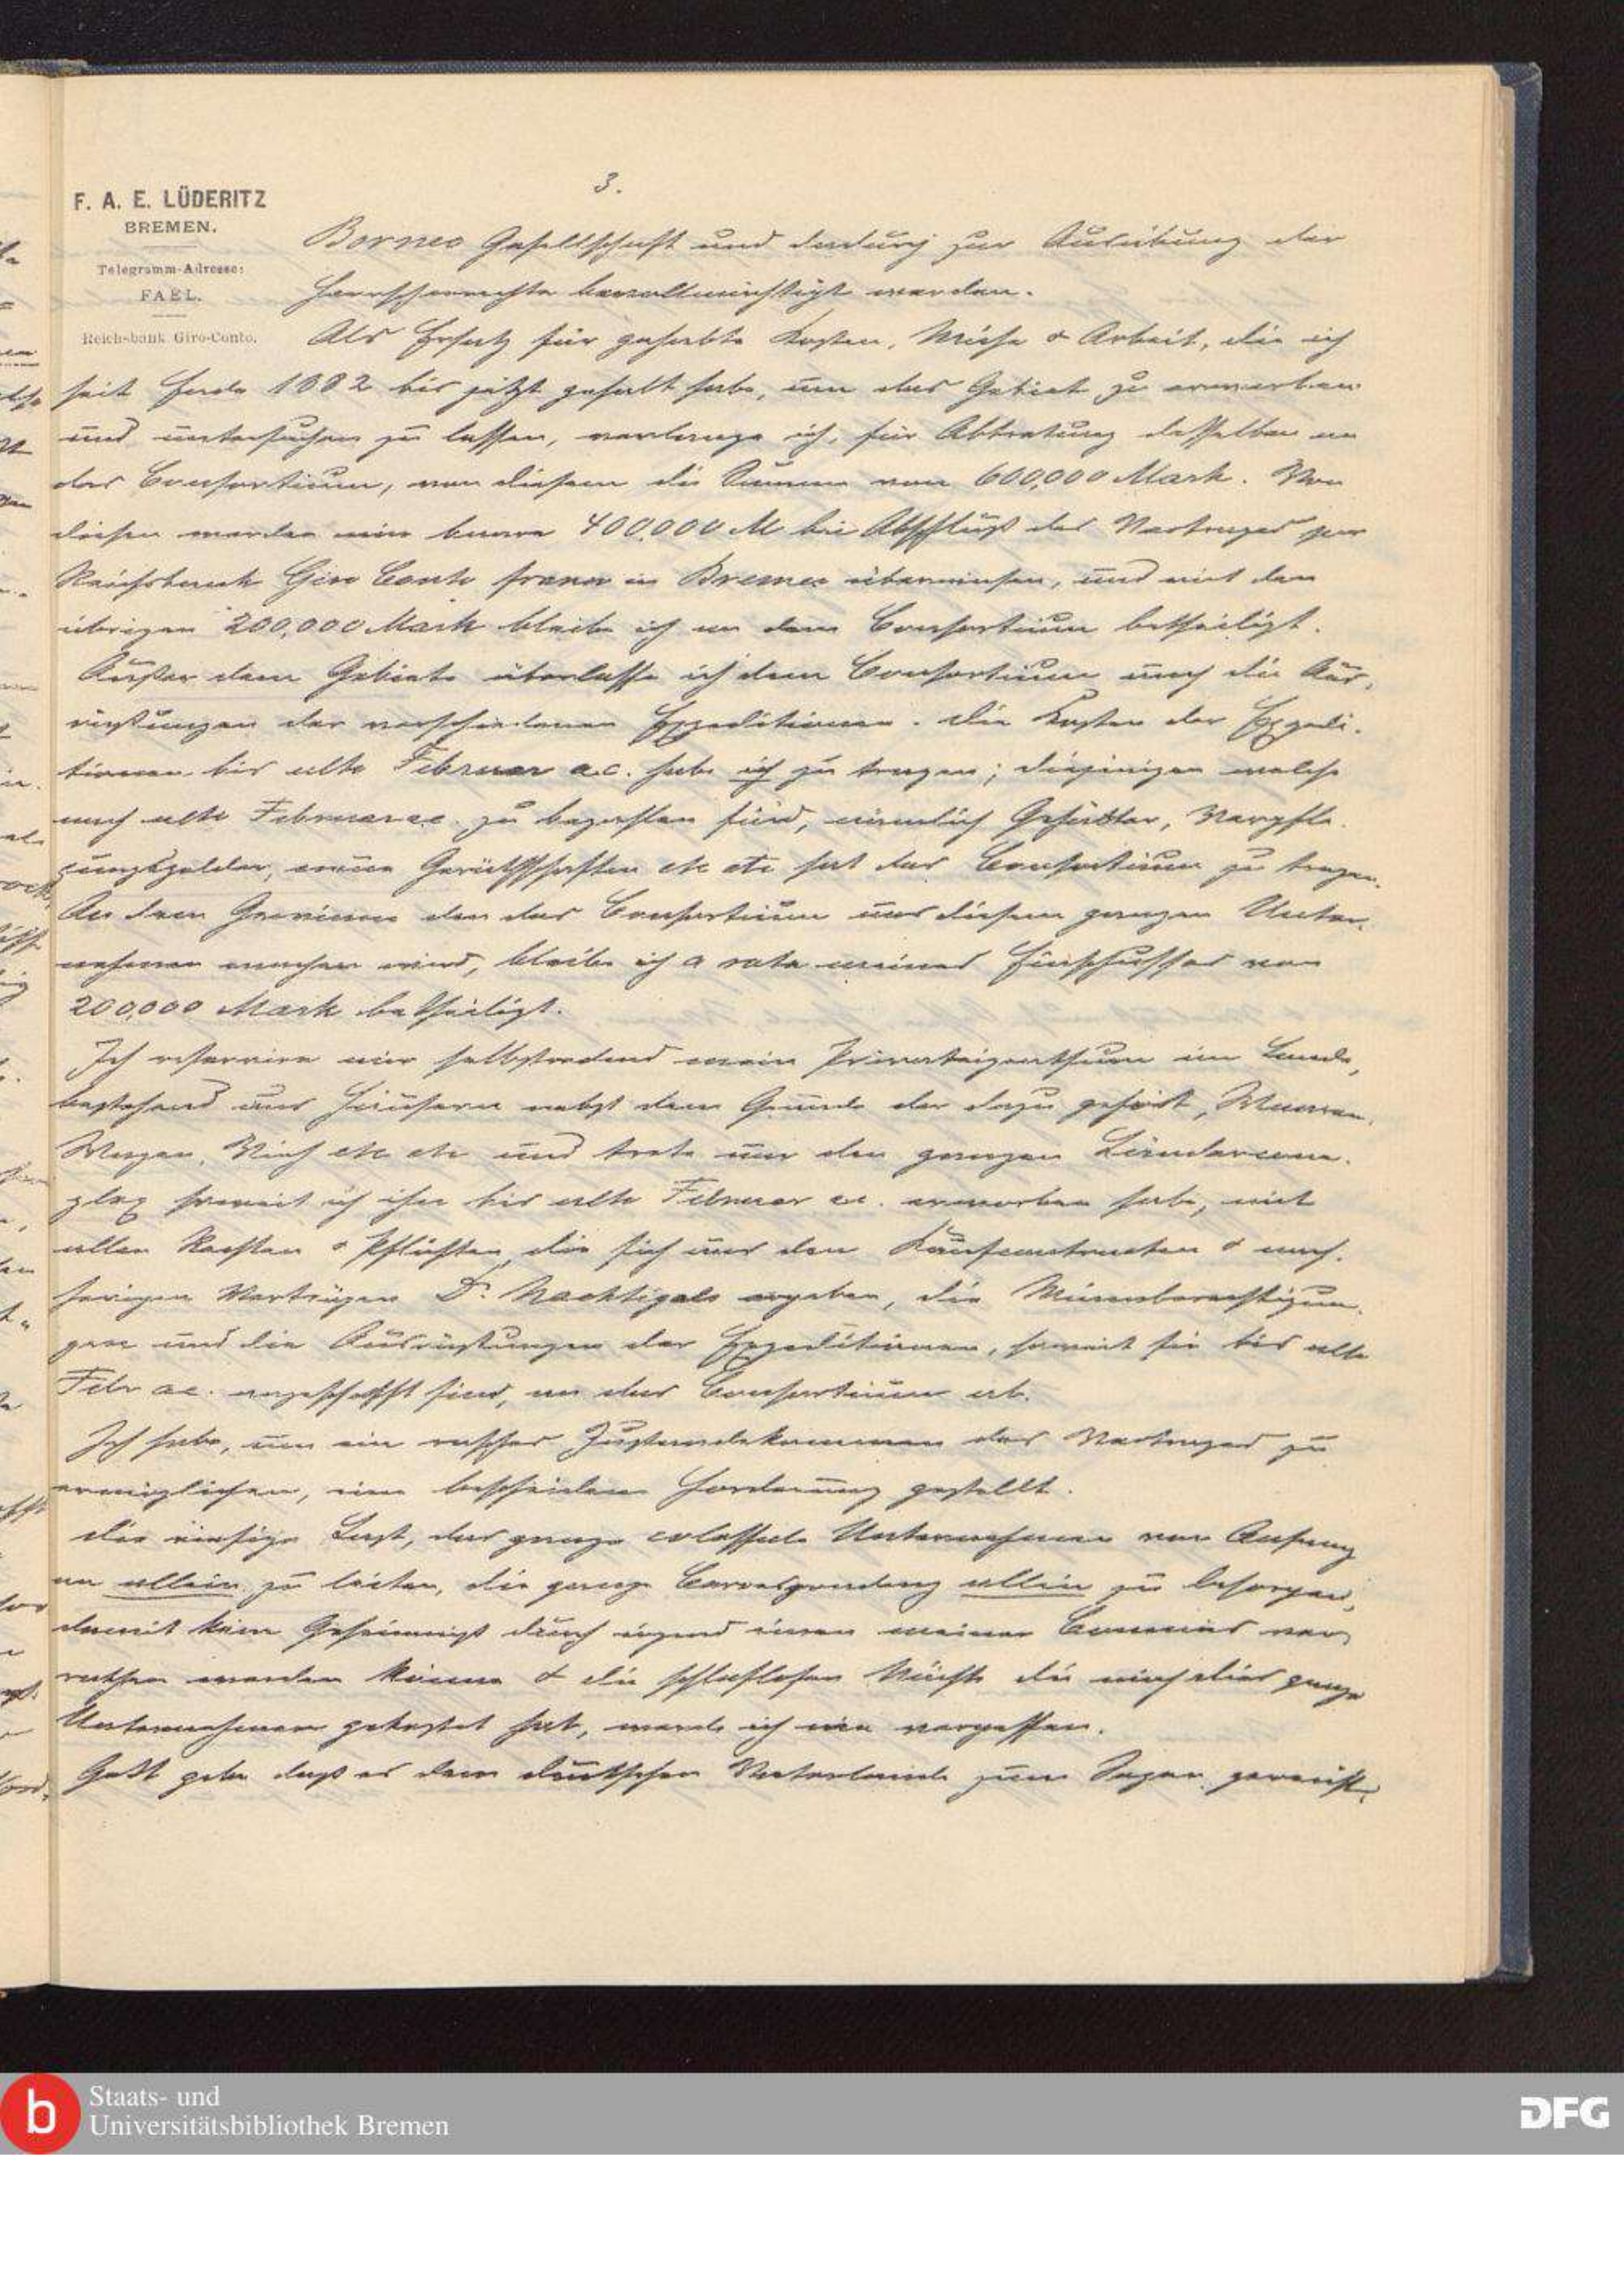 3.
F. A. E. LÜDERITZ
BREMEN.
Telegramm-Adresse:
FAEL.
Reichsbank Giro-Conto.
Borneo Gesellschaft und dadurch zur Ausübung der
Herrscherrechte bevollmächtigt werden.
Als Ersatz für gehabte Kosten, Mühe & Arbeit, die ich
seit Ende 1882 bis jetzt gehabt habe, um das Gebiet zu erwerben
und untersuchen zu lassen, verlange ich, für Abtretung desselben an
das Consortium, von diesem die Summe von 600,000 Mark. Von
diesen werden mir baare 400.000 M bei Abschluß des Vertrages per
Reichsbank Giro Conto franco in Bremen überwiesen, und mit den
übrigen 200,000 Mark bleibe ich an dem Consortium betheiligt.
Außer dem Gebiete überlasse ich dem Consortium auch die Aus-
rüstungen der verschiedenen Expeditionen. Die Kosten der Expedi-
tionen bis ulto Februar a.c. habe ich zu tragen; diejenigen welche
nach ulto Februar ac. zu bezahlen sind, nämlich Gehälter, Verpfle-
gungsgelder, neue Geräthschaften etc etc hat das Consortium zu tragen.
An dem Gewinne den das Consortium aus diesem ganzen Unter-
nehmen machen wird, bleibe ich a rata meines Einschusses von
200,000 Mark betheiligt.
Ich reservire mir selbstredend mein Privateigenthum im Lande,
bestehend aus Häusern nebst dem Grunde der dazu gehört, Waaren,
Wagen, Vieh etc etc und trete nur den ganzen Ländercom-
plex soweit ich ihn bis ulto Februar ac. erworben habe, mit
allen Rechten & Pflichten, die sich aus den Kaufcontracten & nach-
herigen Verträgen Dr. Nachtigals ergeben, die Minenberechtigun-
gen und die Ausrüstungen der Expeditionen, soweit sie bis ulto
Febr ac. angeschafft sind, an das Consortium ab.
Ich habe, um ein rasches Zustandekommen des Vertrages zu
ermöglichen, eine bescheidene Forderung gestellt.
Die riesige Last, das ganze colossale Unternehmen von Anfang
an allein zu leiten, die ganze Correspondenz allein zu besorgen,
damit kein Geheimniß durch irgend einen meiner Commis ver-
rathen werden könne & die schlaflosen Nächte die mich dies ganze
Unternehmen gekostet hat, werde ich nie vergessen.
Gott gebe daß es dem deutschen Vaterlande zum Segen gereicht,
b
Staats- und
Universitätsbibliothek Bremen
DFG